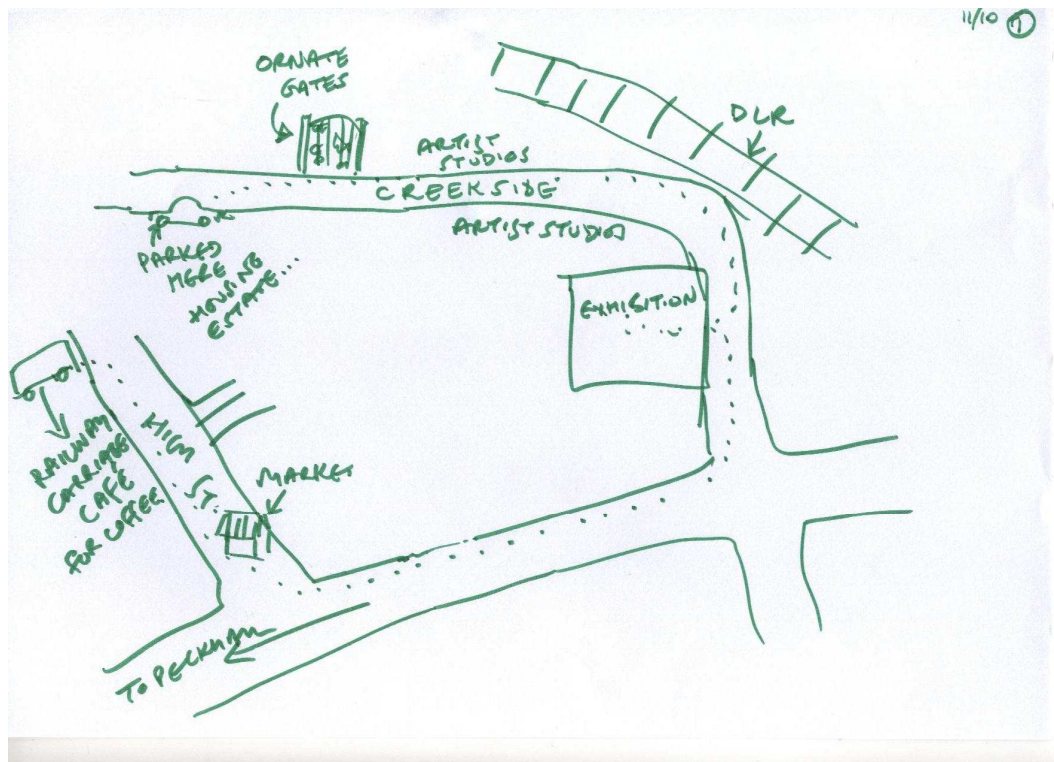 11/10 7
ORNATE
GATES
DLR
ARTIST
STUDIOS
CREEKSIDE
ARTIST STUDIOS
PARKED
HERE
HOUSING
ESTATE...
EXHIBITION
HIGH
ST.
MARKET
RAILWAY
CARRIAGE
CAFE
FOR COFFEE
TO PECKHAM